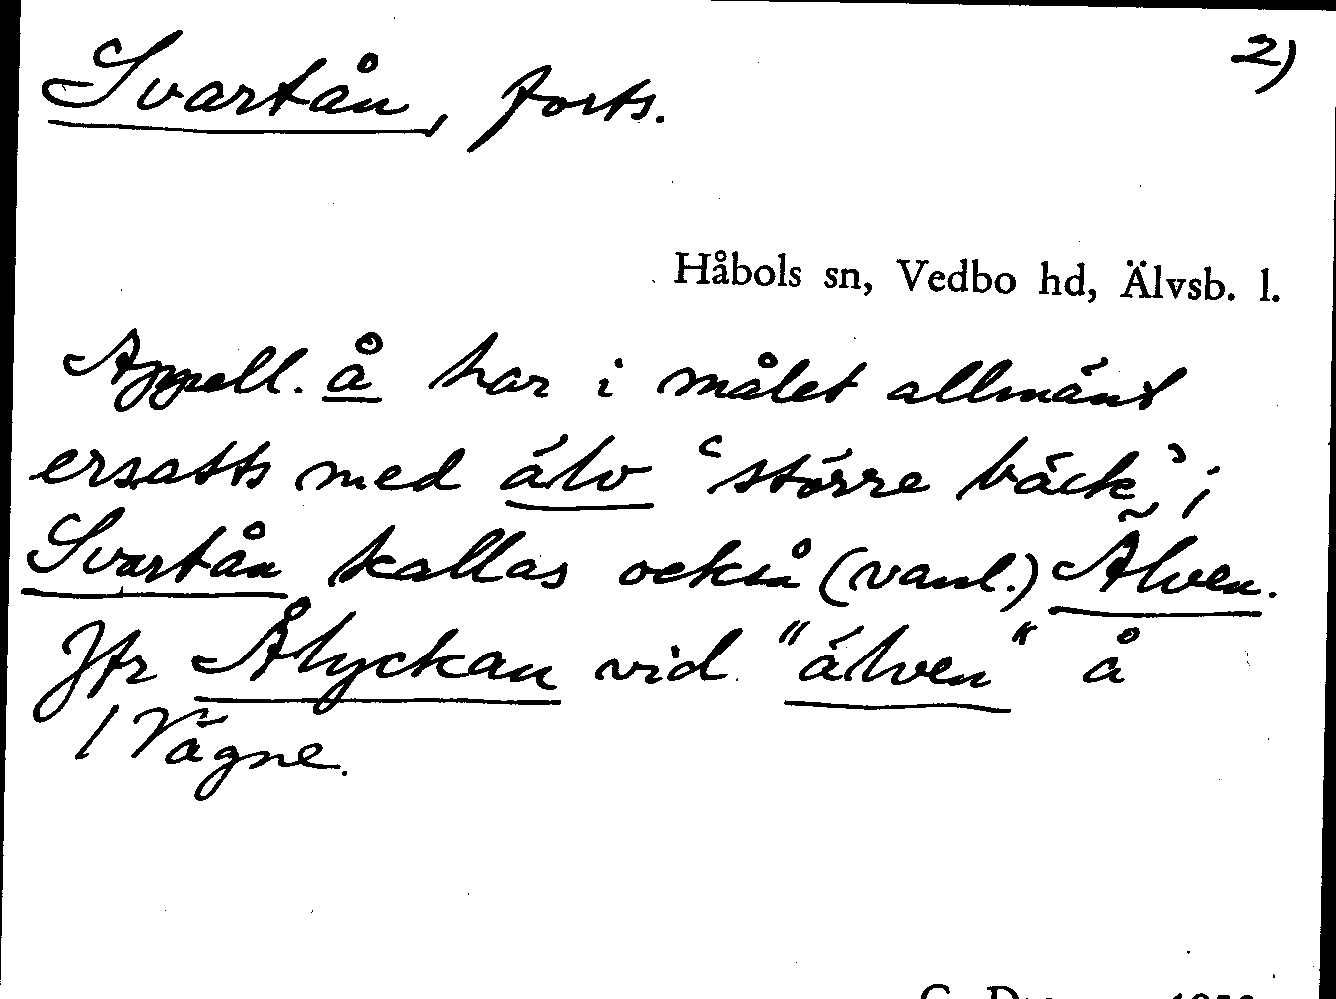 2)
Svartån, forts.
Håbols sn, Vedbo hd, Älvsb. l.
Appell. å har i målet allmänt
ersatts med älv ‘större bäck’;
Svartån kallas också (vanl.) Älven.
Jfr Ålyckan vid "älven" å
1 Vägne.